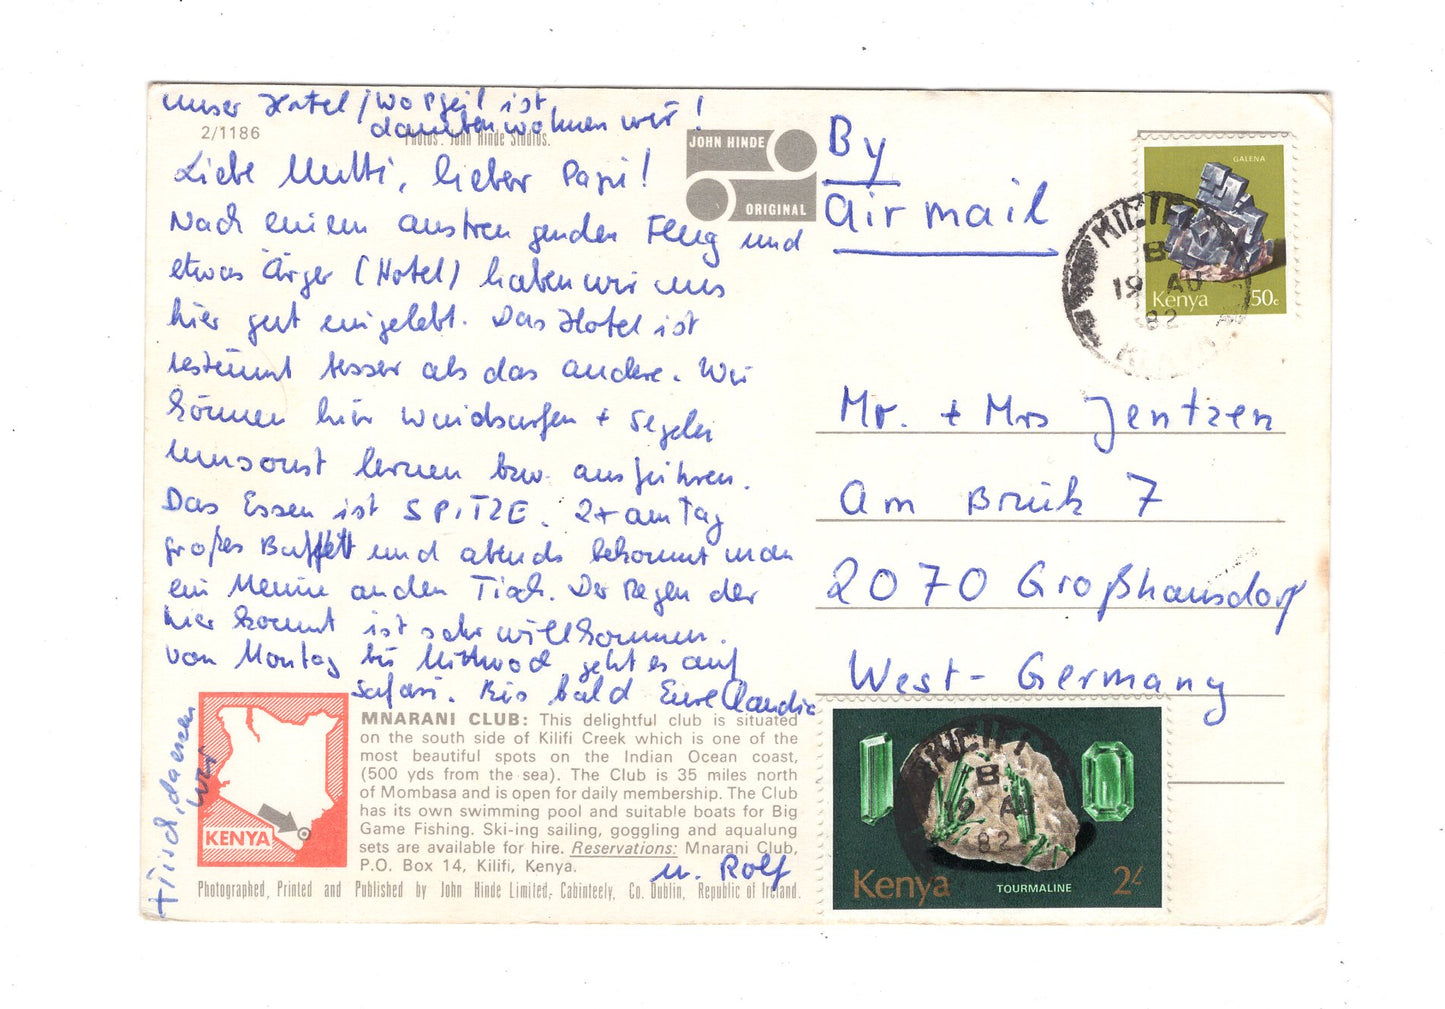 unser Hotel / wo Pfeil ist
daneben wohnen wir!
2/1186
Photos: John Hinde Studios.
JOHN HINDE
ORIGINAL
Liebe Mutti, lieber Papi!
Nach einem anstrengenden Flug und
etwas Ärger (Hotel) haben wir uns
hier gut eingelebt. Das Hotel ist
bestimmt besser als das andere. Wir
können hier Windsurfen + Segeln
umsonst lernen bzw. ausführen.
Das Essen ist SPITZE. 2x am Tag
großes Buffett und abends bekommt man
ein Menue an den Tisch. Der Regen der
hier kommt ist sehr willkommen.
Von Montag bis Mittwoch geht es auf
Safari. Bis bald Eure Claudia
u. Rolf
+ Tisch, da essen
wir
KENYA
MNARANI CLUB: This delightful club is situated
on the south side of Kilifi Creek which is one of the
most beautiful spots on the Indian Ocean coast,
(500 yds from the sea). The Club is 35 miles north
of Mombasa and is open for daily membership. The Club
has its own swimming pool and suitable boats for Big
Game Fishing. Ski-ing sailing, goggling and aqualung
sets are available for hire. Reservations: Mnarani Club,
P.O. Box 14, Kilifi, Kenya.
Photographed, Printed and Published by John Hinde Limited, Cabinteely, Co. Dublin, Republic of Ireland.
By
airmail
GALENA
Kenya 50c
B
19 AU
82
Mr. + Mrs Jentzen
Am Brück 7
2070 Großhansdorf
West-Germany
B
19 AU
82
Kenya TOURMALINE 2/-